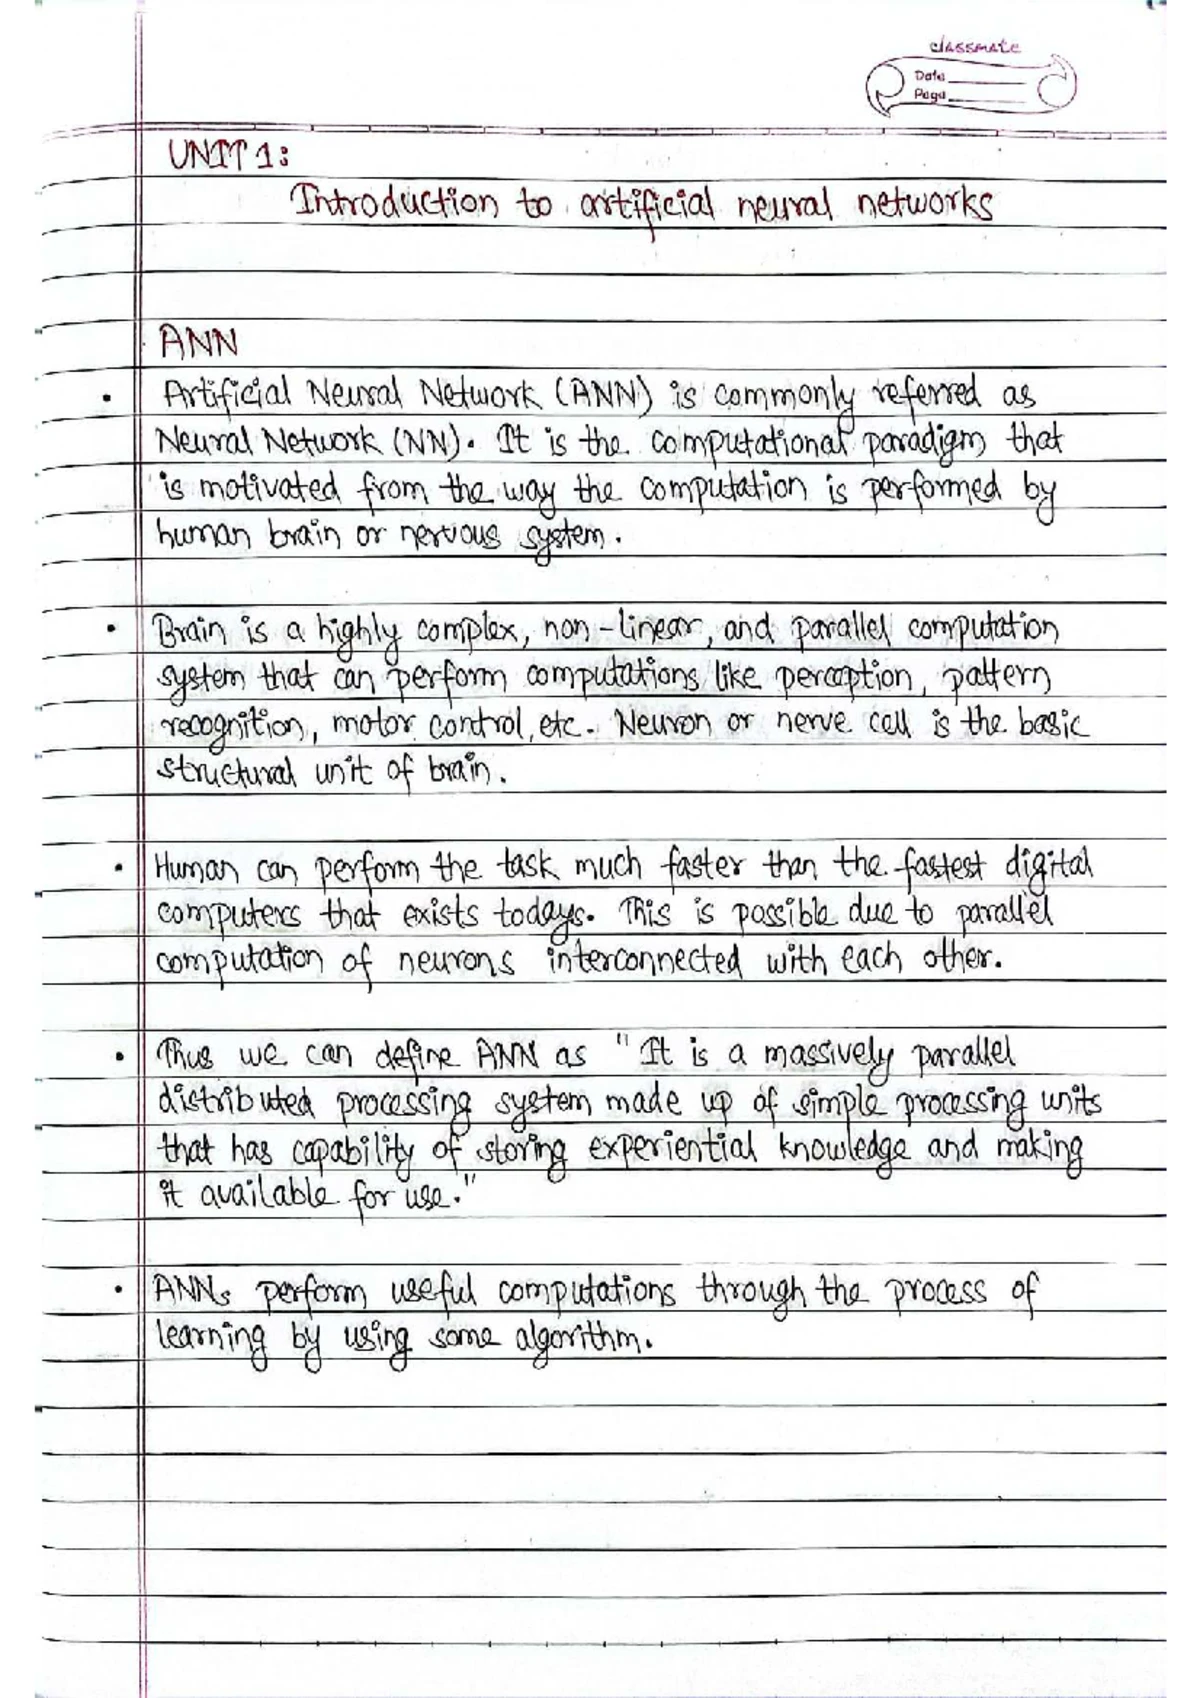 classmate
Date
Page
UNIT 1:
Introduction to artificial neural networks
ANN
• Artificial Neural Network (ANN) is commonly referred as
Neural Network (NN). It is the computational paradigm that
is motivated from the way the computation is performed by
human brain or nervous system.
• Brain is a highly complex, non-linear, and parallel computation
system that can perform computations like perception, pattern
recognition, motor control, etc. Neuron or nerve cell is the basic
structural unit of brain.
• Human can perform the task much faster than the fastest digital
computers that exists todays. This is possible due to parallel
computation of neurons interconnected with each other.
• Thus we can define ANN as "It is a massively parallel
distributed processing system made up of simple processing units
that has capability of storing experiential knowledge and making
it available for use."
• ANNs perform useful computations through the process of
learning by using some algorithm.